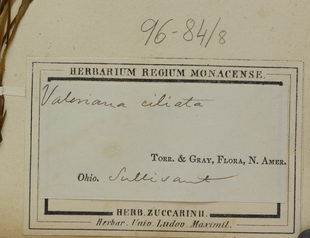 96-84/8
HERBARIUM REGIUM MONACENSE.
Valeriana ciliata
TORR. & GRAY, FLORA, N. AMER.
Ohio. Sullivant
HERB. ZUCCARINII.
Herbar. Univ. Ludov. Maximil.